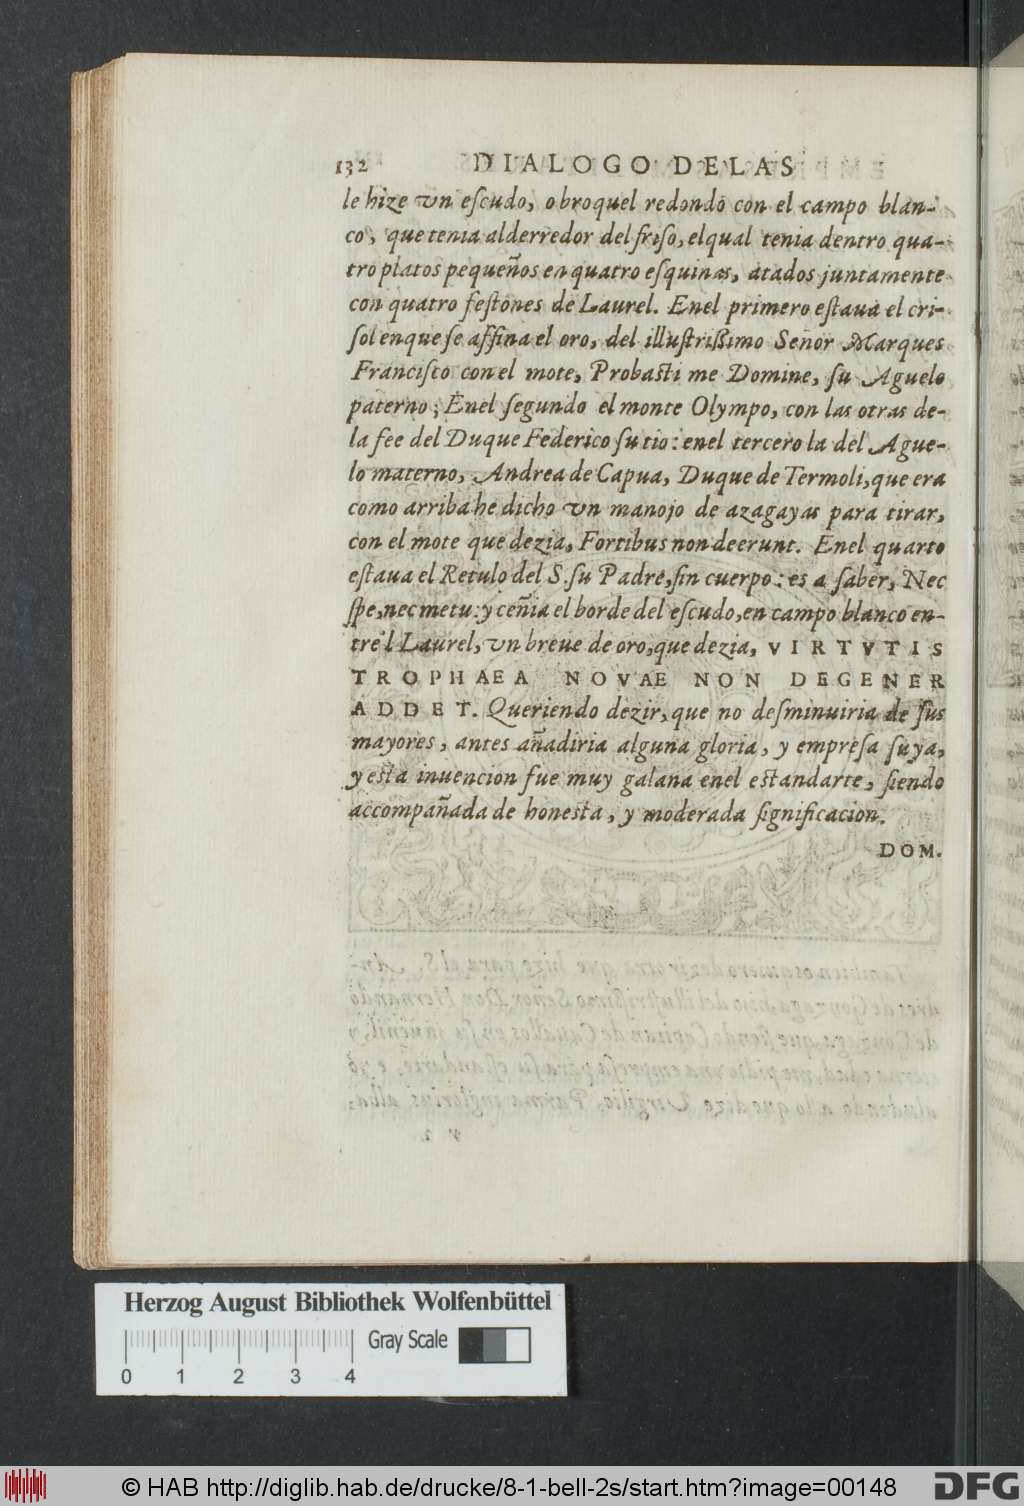 132 DIALOGO DELAS
le hize vn eſcudo, o broquel redondo con el campo blan-
co, que tenia alderredor del friſo, elqual tenia dentro qua-
tro platos pequeños en quatro eſquinas, atados juntamente
con quatro feſtones de Laurel. Enel primero eſtaua el cri-
ſol enque ſe affina el oro, del illuſtriſsimo Señor Marques
Franciſco con el mote, Probaſti me Domine, ſu Aguelo
paterno; Enel ſegundo el monte Olympo, con las otras de-
la fee del Duque Federico ſu tio: enel tercero la del Ague-
lo materno, Andrea de Capua, Duque de Termoli, que era
como arriba he dicho vn manojo de azagayas para tirar,
con el mote que dezia, Fortibus non deerunt. Enel quarto
eſtaua el Retulo del S. ſu Padre, ſin cuerpo: es a ſaber, Nec
ſpe, nec metu: y ceñia el borde del eſcudo, en campo blanco en-
tre'l Laurel, vn breue de oro, que dezia, VIRTVTIS
TROPHAEA NOVAE NON DEGENER
ADDET. Queriendo dezir, que no deſminuiria de ſus
mayores, antes añadiria alguna gloria, y empreſa ſuya,
y eſta inuencion fue muy galana enel eſtandarte, ſiendo
accompañada de honesta, y moderada ſignificacion.
DOM.
Herzog August Bibliothek Wolfenbüttel
Gray Scale
0 1 2 3 4
© HAB http://diglib.hab.de/drucke/8-1-bell-2s/start.htm?image=00148
DFG